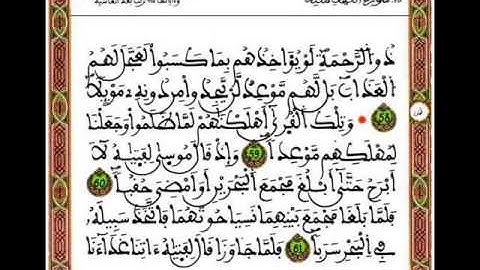 ذُو الرَّحْمَةِ لَوْ يُؤَاخِذُهُم بِمَا كَسَبُواْ لَعَجَّلَ لَهُمُ
الْعَذَابَ بَل لَّهُم مَّوْعِدٌ لَّنْ يَّجِدُواْ مِن دُونِهِ مَوْئِلًا
58 وَتِلْكَ الْقُرَىٰ أَهْلَكْنَٰهُمْ لَمَّا ظَلَمُواْ وَجَعَلْنَا
لِمُهْلَكِهِم مَّوْعِدًا 59 وَإِذْ قَالَ مُوسَىٰ لِفَتَىٰهُ لَا
أَبْرَحُ حَتَّىٰ أَبْلُغَ مَجْمَعَ الْبَحْرَيْنِ أَوْ أَمْضِيَ حُقُبًا 60
فَلَمَّا بَلَغَا مَجْمَعَ بَيْنِهِمَا نَسِيَا حُوتَهُمَا فَاتَّخَذَ سَبِيلَهُ
فِي الْبَحْرِ سَرَبًا 61 فَلَمَّا جَاوَزَا قَالَ لِفَتَىٰهُ ءَاتِنَا غَدَاءَنَا